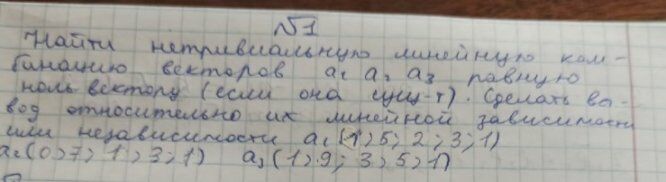 №1
Найти нетривиальную линейную ком-
бинацию векторов a₁ a₂ a₃ равную
ноль вектору (если она сущ-т). Сделать вы-
вод относительно их линейной зависимости
или независимости a₁ (1; 5; 2; 3; 1)
a₂ (0; 7; 1; 3; 1) a₃ (1; 9; 3; 5; 1)